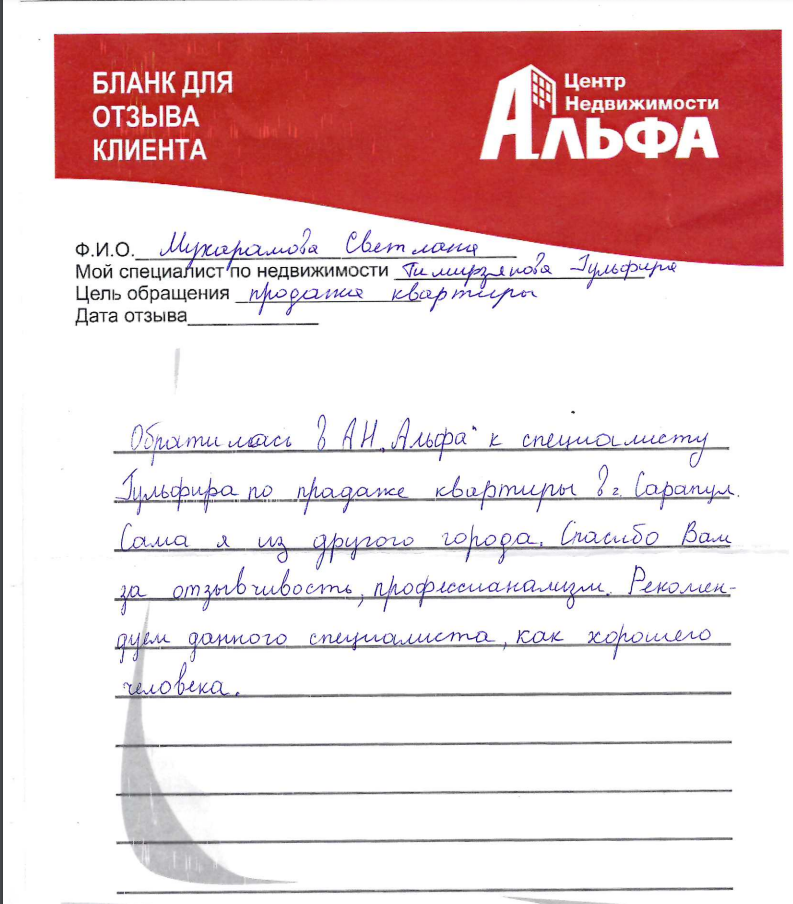 БЛАНК ДЛЯ
ОТЗЫВА
КЛИЕНТА
Центр
Недвижимости
АЛЬФА
Ф.И.О. Мукарамова Светлана
Мой специалист по недвижимости Тимирзянова Гульфира
Цель обращения продажа квартиры
Дата отзыва
Обратилась в АН „Альфа" к специалисту
Гульфира по прадаже квартиры в г. Сарапул.
Сама я из другого города. Спасибо Вам
за отзывчивость, професcианализм. Рекомен-
дуем данного специалиста, как хорошего
человека.